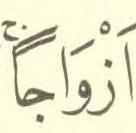 اَزْوَاجًا ج